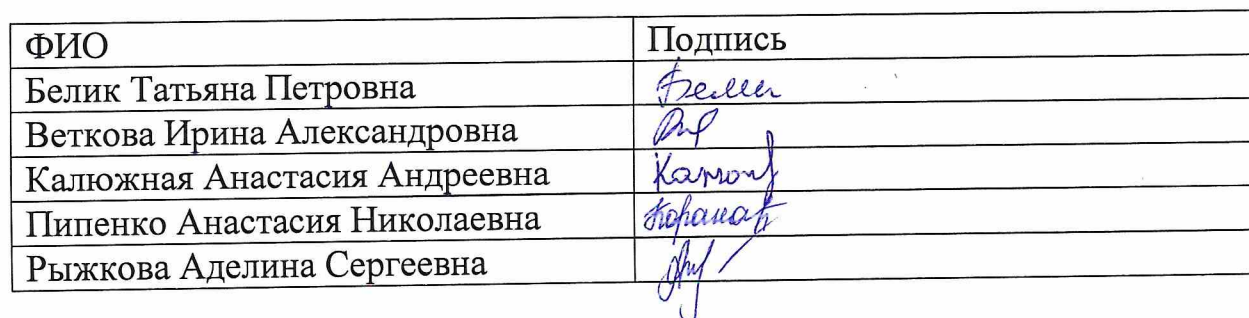 ФИО Подпись
Белик Татьяна Петровна Бели
Веткова Ирина Александровна
Калюжная Анастасия Андреевна Калюж
Пипенко Анастасия Николаевна
Рыжкова Аделина Сергеевна